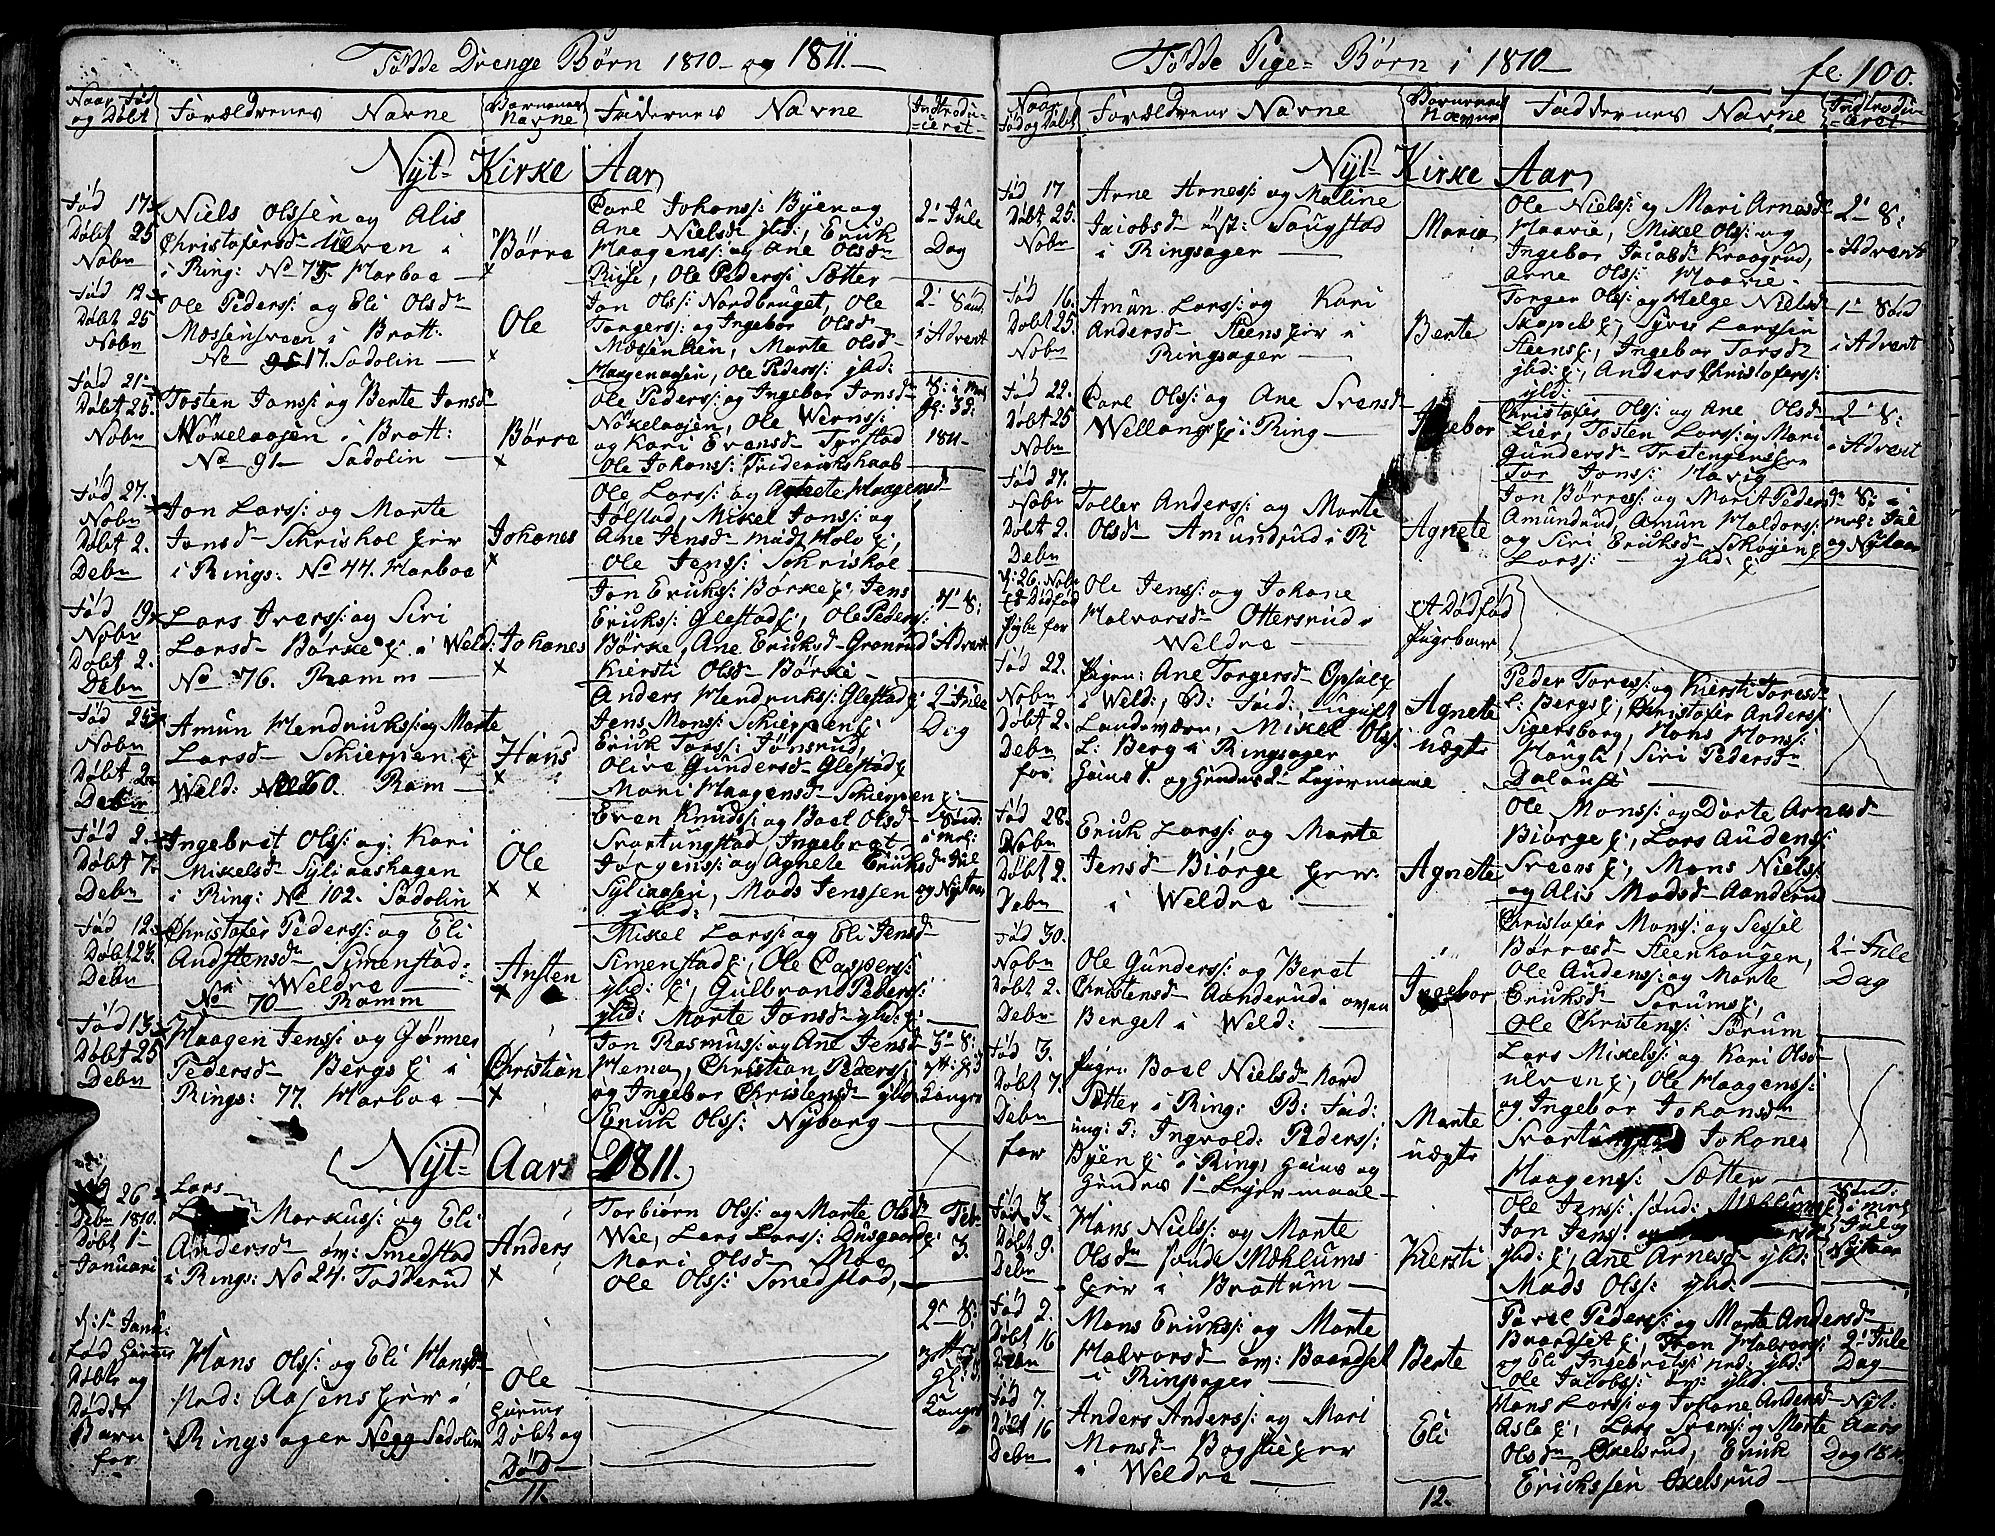 Fødde Drenge Børn 1810 og 1811.
Naar Fød og Døbt
Forældrenes Navne
Børnenes Navne
Faddernes Navne
Introduceret
Nyt Kirke Aar
Fød 17
Døbt 25
Nobr
Niels Olssen og Alis
Christofersd Ulven i
i Ring: No 75 Harboe
Børre
Carl Johans: Byen og
Ane Nielsd ibd: Erick
Haagenss: og Ane Olsd
Riise, Ole Peders: Sætter
2 Jule
Dag
Fød 12
Døbt 25
Nobr
Ole Peders: og Eli Olsd
Mæssensveen i Brott:
No 17. Sadolin
Ole
Jon Ols: Nordbruget, Ole
Torgers: og Ingebor Olsd
Mæssenhen, Marte Olsd
Haagenaasen, Ole Peders: ibd:
2 Sønd
i Advent
Fød 21
Døbt 25
Nobr
Tosten Jons: og Berte Jonsd
Nökelaasen i Brott:
No 91 Sadolin
Børre
Ole Peders: og Ingebor Jonsd
Nökelaasen, Ole
og Kari Evensd Tyrstad
Ole Johans: Friderichshaab
1811
Fød 27.
Nobr
Døbt 2.
Debr
Jon Lars: og Marte
Jonsd Schrishol
i Rings: No 44. Harboe
Johanes
Ole Lars: og Agnete Haagensd
Jølstad, Mikel Jons: og
Ane Jensd
Ole Jens: Schrishol
Fød 19
Nobr
Døbt 2.
Debr
Lars Ivers: og Siri
Larsd Børke i Weld:
No 76. Ramm
Johanes
Jon Eriks: Børke, Jens
Eriks: Glestad, Ole Peders:
Børke, Ane Eriksd Grønrud
Kiersti Olsd Børke
4 S:
i Advent
Fød 25
Nobr
Døbt 2
Debr
Amun Hendriks: og Marte
Larsd Schierpen
Weld: 60. Ram
Hans
Anders Hendriks: Glestad
Jens Mons: Schierpen
Erick Tors: Jønsrud,
Olive Gundersd Glestad
Mari Haagensd Schierpen
2 Jule
Dag
Fød 2.
Døbt 7.
Debr
Ingebret Ols: og Kari
Mikelsd Syliaashagen
i Ring: No 102. Sadolin
Ole
Even Knuds: og Boel Olsd
Svartungstad, Ingebret
Jørgens: og Agnete Ericksd
Syliaasen, Mads Jenssen
ibd:
Sønd:
i mel:
Jul
og Nytaar
Fød 12
Døbt 24
Debr
Christofer Peders: og Eli
Andstensd Simenstad
Weldre
No 70 Ramm
Ansten
Mikel Lars: og Eli Jensd
Simenstad, Ole Caspers:
ibd: Gulbrand Peders:
ibd: Marte Jonsd ibd:
Fød 13
Døbt 25
Debr
Haagen Jens: og Gønner
Pedersd Bergs i
Rings: 77. Harboe
Christian
Jon Rasmus: og Ane Jensd
Hemo, Christian Peders:
og Ingebor Christensd ibd:
Erick Ols: Nyborg
3 S:
Nyt Aar 1811.
26
Debr 1810.
Døbt 1
Januari
Lars
Markus: og Eli
Andersd øv: Smedstad
i Rings: No 24. Todderud
Anders
Torbiørn Ols: og Marte Olsd
Wee, Lars Lars: Dusgaard
Mari Olsd Moe
Ole Ols: Smedstad,
Febr
3.
d: 1 Janu:
Fød
Døbt og
Døde
Barn
for
Hans Ols: og Eli Hansd
Ned: Aasen i
Ringsager Sadolin
Ole
Døbt og
Død
2 S:
11.
Fødde Pige Børn i 1810
fe: 100.
Naar Fød og Døbt
Forældrenes Navne
Børnenes Navne
Faddernes Navne
Introduceret
Nyt Kirke Aar
Fød 17.
Døbt 25.
Nobr
Arne Arnes: og Maline
Jacobsd øst: Saugstad
i Ringsager
Maria
Ole Niels: og Mari Arnesd
Haavie, Mikel Ols: og
Ingebor Jacobsd Kraagrud,
Arne Ols: Haavie
2 S:
i Advent
Fød 16.
Døbt 25.
Nobr
Amun Lars: og Kari
Andersd Steens i
Ringsager
Berte
Torger Ols: og Helge Nielsd
Skapels, Syver Larssen
Steens, Ingebor Torsd
ibd: Anders Christofers:
ibd:
1 Sød
i Advent
Fød 22.
Døbt 25
Nobr
Carl Ols: og Ane Svensd
Wellang i Ring
Ingebor
Christofer Ols: og Ane Olsd
Lier, Tosten Lars: og Mari
Gundersd
Tor Jons: Havig
2 S:
i Advent
Fød 27.
Nobr
Døbt 2.
Debr
Toller Anders: og Marte
Olsd Amundrud i R
Agnete
Jon Børres: og Marit Pedersd
Amundrud, Amun Haldors:
og Siri Ericksd Skøyen
Lars: ibd:
S: i
mel: Jul
og Nytaar
d: 26. Nobr
Dødfød
Ole Jens: og Johane
Halvorsd Ottersrud i
Weldre
Et Dødfød
Pigebarn
Fød 22.
Nobr
Døbt 2.
Debr
for
Pigen: Ane Torgersd Opsal
i Weld: B: Fad: ugift
Landeværn, Mikel Ols:
L: Berg i Ringsager
hans 1. og hendes 2 Leyermaal
Agnete
uægte
Peder Tores: og Kiersti Toresd
L: Bergs, Christofer Anders:
Sigersborg, Hans Hans:
Haugli, Siri Pedersd
Fød 28.
Nobr
Døbt 2.
Debr
Erick Lars: og Marte
Jensd Biørge
i Weldre
Agnete
Ole Mons: og Dorte Arnesd
Biørge, Lars Audens:
Sveen, Mons Niels:
og Alis Madsd Aanderud
Fød 30.
Nobr
Døbt 2.
Debr
Ole Gunders: og Beret
Christensd Aanderud i oven
Berget i Weld:
Ingebor
Christofer Mons: og Sessel
Børresd Steenhaugen,
Ole Audens: og Marte
Ericksd Sørums,
Ole Christens: Sørum
2 Jule
Dag
Fød 3.
Døbt 7.
Debr
for
Pigen: Boel Nielsd Nord
Sætter i Ring: B: Fad:
ung: S: Ingvold: Peders:
Byen i Ring, hans og
hendes 1 Leyermaal
Marte
uægte
Lars Mikels: og Kari Olsd
Ulven, Ole Haagens:
og Ingebor Johansd
Johanes
Haagens: Sætter
Fød 3.
Døbt 9.
Debr
Hans Niels: og Marte
Olsd søndr Mæhlums
i Brottum
Kiersti
Ole Jens: sønd: Mæhlum
Jon Jens: og
ibd: Ane Arnesd ibd:
Mads Ols: ibd:
Sønd:
i mel
Jul og
Nytaar
Fød 2.
Døbt 16
Debr
Mons Ericks: og Marte
Halvorsd øv: Baardset
i Ringsager
Berte
Povel Peders: og Marte Andersd
Baardset, Iver Halvors:
og Eli Ingebrets: ned: ibd:
Ole Jacobs: øv: ibd:
2 Jule
Dag
Fød 7.
Døbt 16
Debr
Anders Anders: og Mari
Monsd Bogstie
i Weldre
Eli
Hans Lars: og Johane Andersd
Asla, Lars Svens: og Marte
Olsd Exelsrud, Erick
Erickssen Exelsrud
Nyt:
Aars
Dag 1811
12.